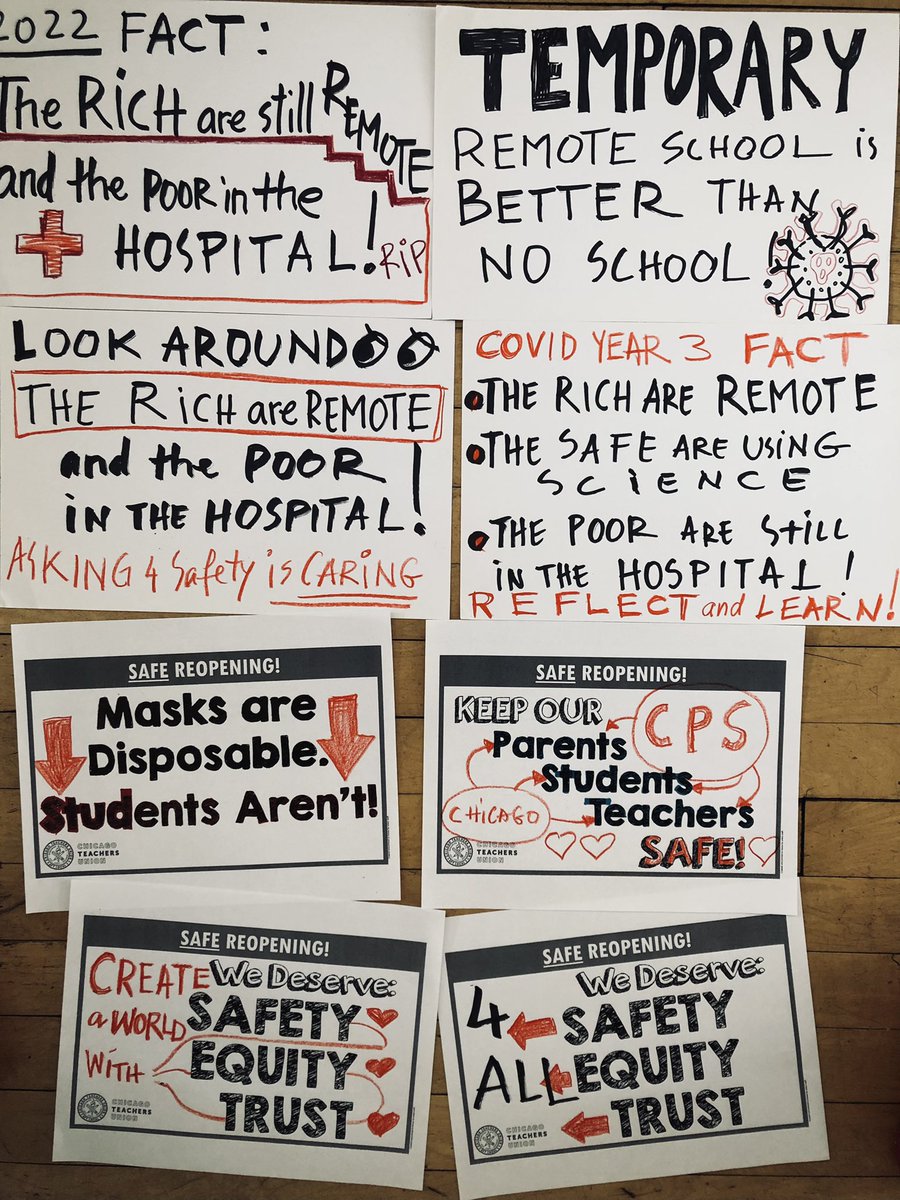 2022 FACT:
The RiCH are still REMOTE
and the POOR in the
HOSPITAL! RiP
TEMPORARY
REMOTE SCHOOL is
BETTER THAN
NO SCHOOL!
LOOK AROUND
THE RiCH are REMOTE
and the POOR
iN THE HOSPITAL!
ASKING 4 Safety is CARiNG
COVID YEAR 3 FACT
THE RICH ARE REMOTE
THE SAFE ARE USiNG
SCiENCE
THE POOR ARE Still
iN THE HOSPITAL!
REFLECT and LEARN!
SAFE REOPENING!
Masks are
Disposable.
Students Aren't!
CHICAGO
TEACHERS
UNION
SAFE REOPENING!
KEEP OUR
CPS
Parents
Students
CHiCAGO
Teachers
SAFE!
CHICAGO
TEACHERS
UNION
SAFE REOPENING!
CREATE We Deserve:
a WORLD SAFETY
WiTH EQUITY
TRUST
CHICAGO
TEACHERS
UNION
SAFE REOPENING!
We Deserve:
4 SAFETY
ALL EQUITY
TRUST
CHICAGO
TEACHERS
UNION